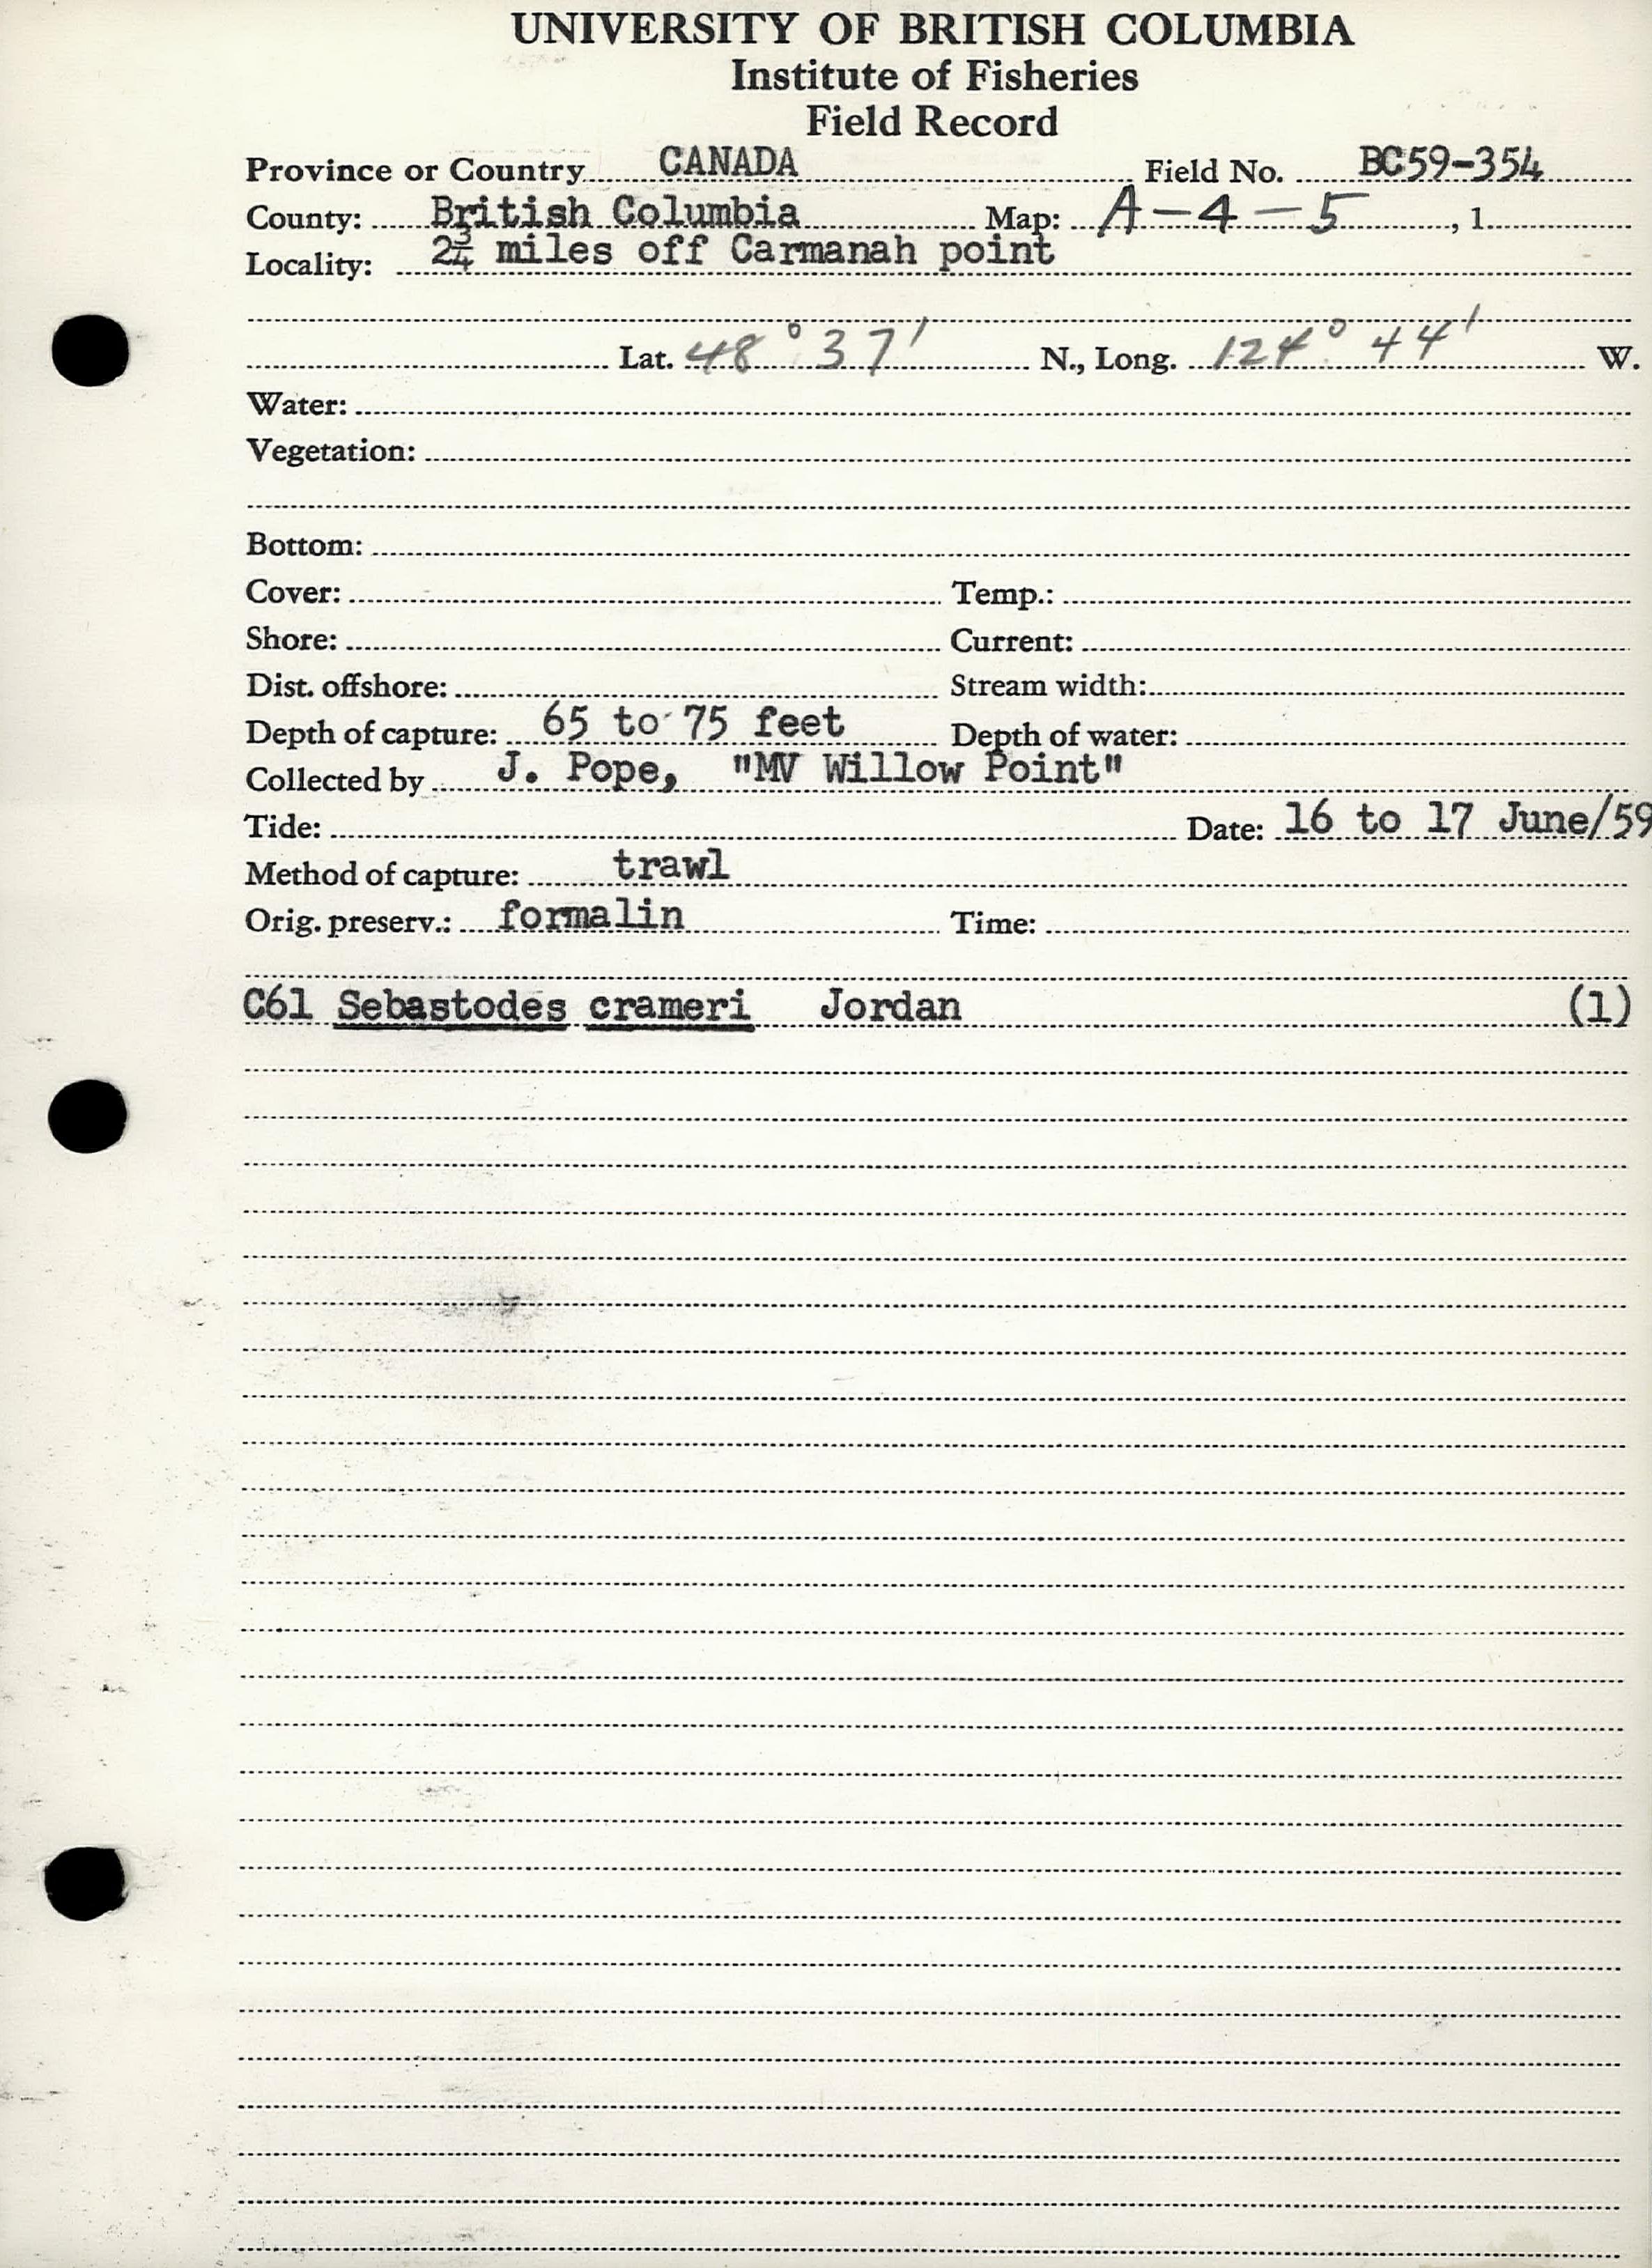 UNIVERSITY OF BRITISH COLUMBIA
Institute of Fisheries
Field Record
Province or Country CANADA Field No. BC59-354
County: British Columbia Map: A-4-5, 1
Locality: 2¾ miles off Carmanah point
Lat. 48° 37' N., Long. 124° 44' W.
Water:
Vegetation:
Bottom:
Cover: Temp.:
Shore: Current:
Dist. offshore: Stream width:
Depth of capture: 65 to 75 feet Depth of water:
Collected by J. Pope, "MV Willow Point"
Tide: Date: 16 to 17 June/59
Method of capture: trawl
Orig. preserv.: formalin Time:
C61 Sebastodes crameri Jordan (1)